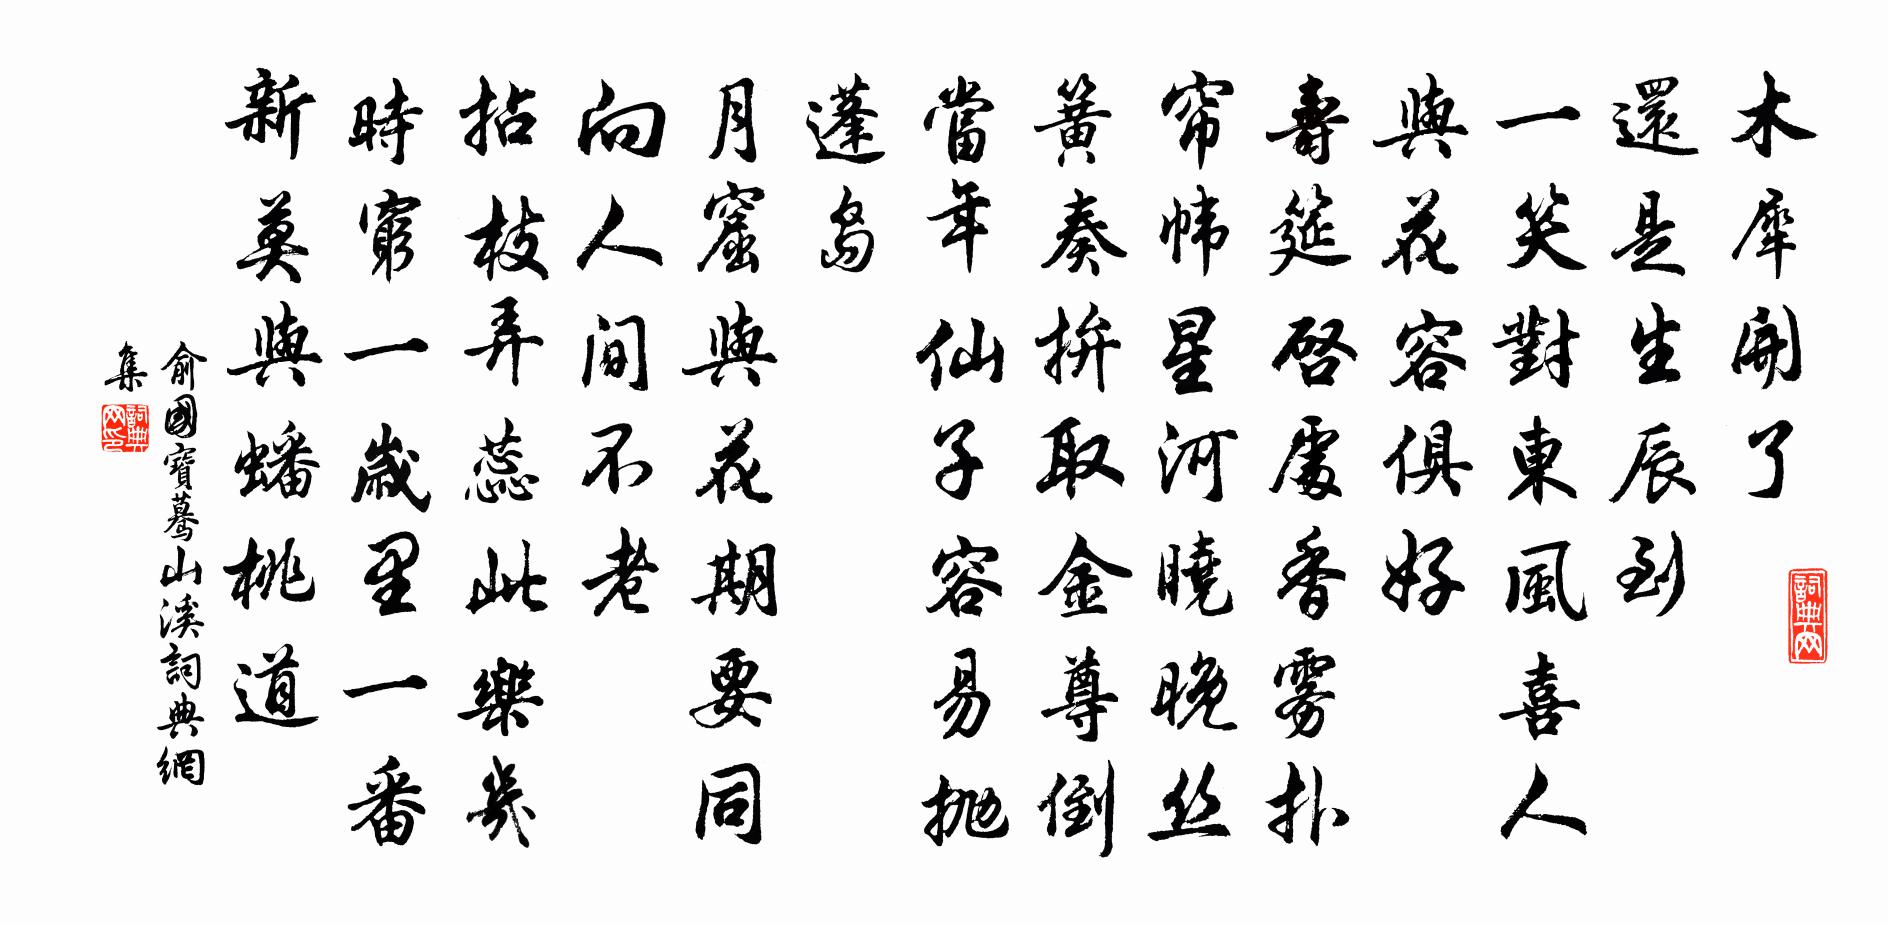 木犀開了
還是生辰到
一笑對東風喜人
與花容俱好
壽筵啓處香雾扑
帘幃星河曉晚丝
簧奏拚取金尊倒
當年仙子容易抛
蓬島
月窟與花期要同
向人間不老
拈枝弄蕊此樂幾
時窮一歲里一番
新莫與蟠桃道
俞國寶驀山溪詞典網
集
詞典網
詞典网印